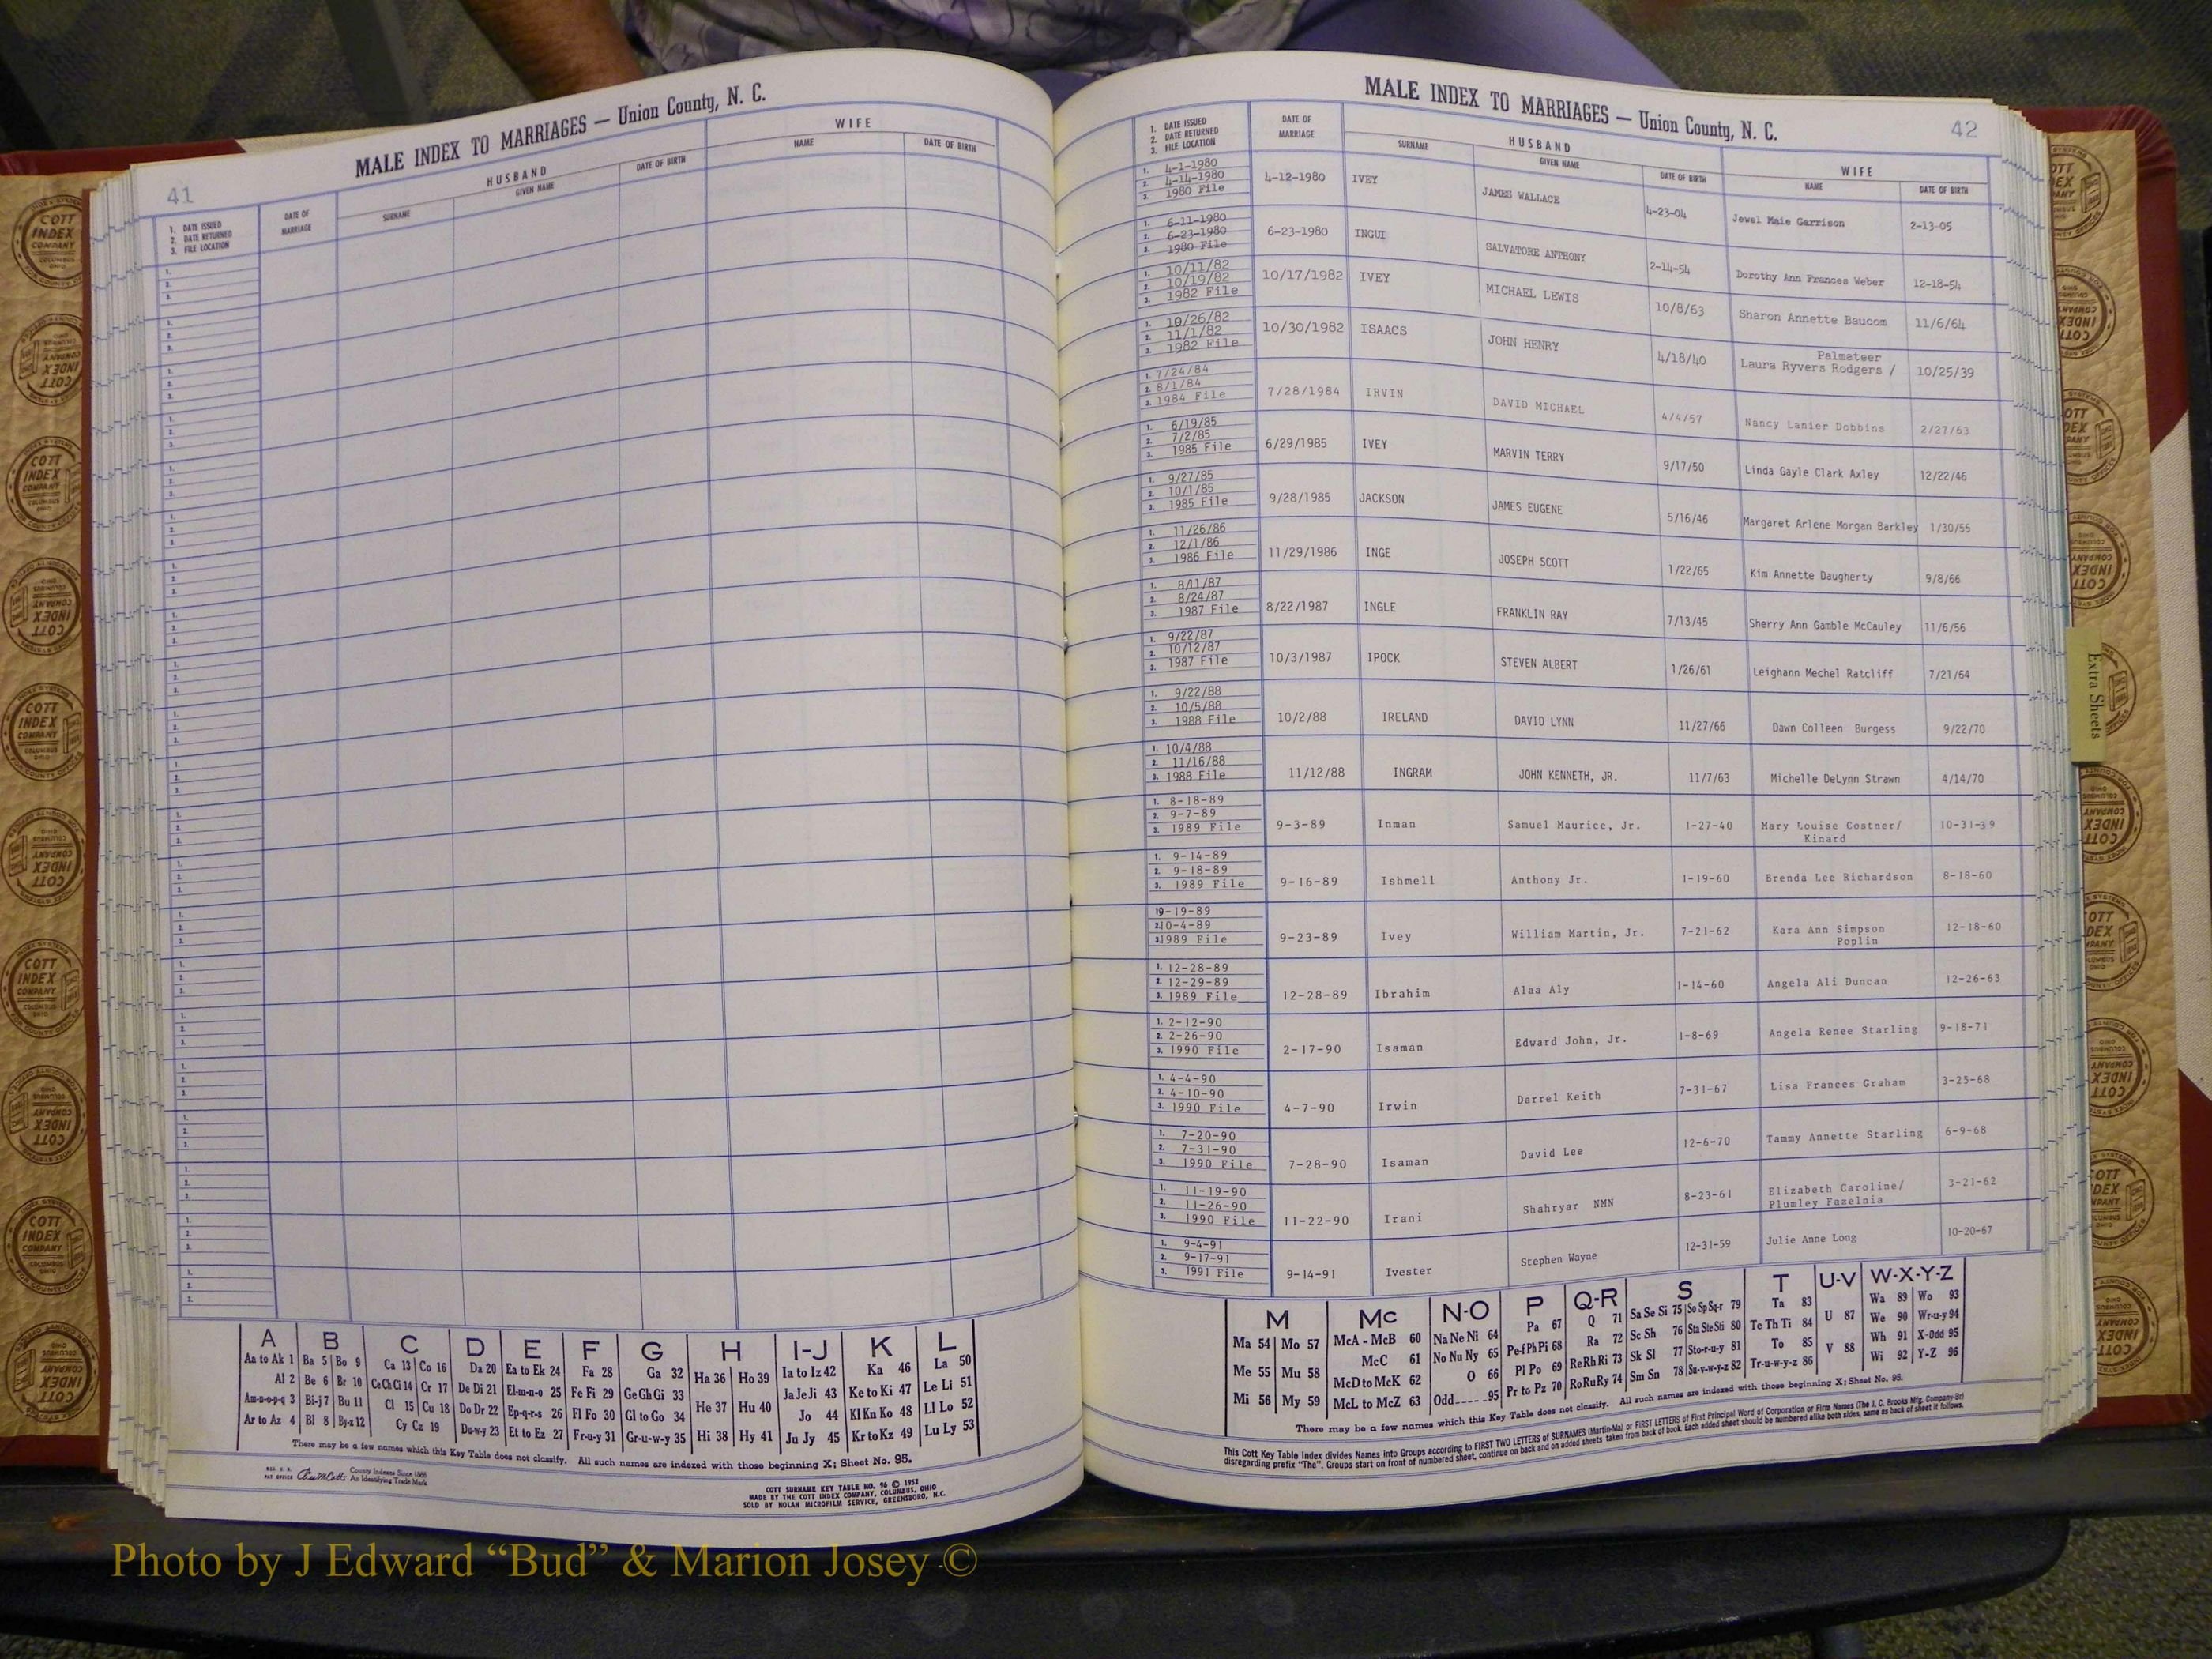 MALE INDEX TO MARRIAGES — Union County, N. C.
41
1. DATE ISSUED
2. DATE RETURNED
3. FILE LOCATION
DATE OF MARRIAGE
HUSBAND
SURNAME GIVEN NAME DATE OF BIRTH
WIFE
NAME DATE OF BIRTH
A B C D E F G H I-J K L
Aa to Ak 1 Ba 5 Bo 9 Ca 13 Co 16 Da 20 Ea to Ek 24 Fa 28 Ga 32 Ha 36 Ho 39 Ia to Iz 42 Ka 46 La 50
Al 2 Be 6 Br 10 Ce Ch Ci 14 Cr 17 De Di 21 El-m-n-o 25 Fe Fi 29 Ge Gh Gi 33 He 37 Hu 40 Ja Je Ji 43 Ke to Ki 47 Le Li 51
Am-n-o-p-q 3 Bi-j 7 Bu 11 Cl 15 Cu 18 Do Dr 22 Ep-q-r-s 26 Fl Fo 30 Gl to Go 34 Hi 38 Hy 41 Jo 44 Kl Kn Ko 48 Ll Lo 52
Ar to Az 4 Bl 8 By-z 12 Cy Cz 19 Du-w-y 23 Et to Ez 27 Fr-u-y 31 Gr-u-w-y 35 Ju Jy 45 Kr to Kz 49 Lu Ly 53
There may be a few names which this Key Table does not classify. All such names are indexed with those beginning X; Sheet No. 95.
County Indexes Since 1888
An Identifying Trade Mark
COTT SURNAME KEY TABLE NO. 96 © 1952
MADE BY THE COTT INDEX COMPANY, COLUMBUS, OHIO
SOLD BY NOLAN MICROFILM SERVICE, GREENSBORO, N.C.
MALE INDEX TO MARRIAGES — Union County, N. C.
42
1. DATE ISSUED
2. DATE RETURNED
3. FILE LOCATION
DATE OF MARRIAGE
HUSBAND
SURNAME GIVEN NAME DATE OF BIRTH
WIFE
NAME DATE OF BIRTH
1. 4-1-1980
2. 4-14-1980
3. 1980 File
4-12-1980 IVEY JAMES WALLACE 4-23-04 Jewel Maie Garrison 2-13-05
1. 6-11-1980
2. 6-23-1980
3. 1980 File
6-23-1980 INGUI SALVATORE ANTHONY 2-14-54 Dorothy Ann Frances Weber 12-18-54
1. 10/11/82
2. 10/19/82
3. 1982 File
10/17/1982 IVEY MICHAEL LEWIS 10/8/63 Sharon Annette Baucom 11/6/64
1. 10/26/82
2. 11/1/82
3. 1982 File
10/30/1982 ISAACS JOHN HENRY 4/18/40 Laura Ryvers Rodgers / Palmateer 10/25/39
1. 7/24/84
2. 8/1/84
3. 1984 File
7/28/1984 IRVIN DAVID MICHAEL 4/4/57 Nancy Lanier Dobbins 2/27/63
1. 6/19/85
2. 7/2/85
3. 1985 File
6/29/1985 IVEY MARVIN TERRY 9/17/50 Linda Gayle Clark Axley 12/22/46
1. 9/27/85
2. 10/1/85
3. 1985 File
9/28/1985 JACKSON JAMES EUGENE 5/16/46 Margaret Arlene Morgan Barkley 1/30/55
1. 11/26/86
2. 12/1/86
3. 1986 File
11/29/1986 INGE JOSEPH SCOTT 1/22/65 Kim Annette Daugherty 9/8/66
1. 8/11/87
2. 8/24/87
3. 1987 File
8/22/1987 INGLE FRANKLIN RAY 7/13/45 Sherry Ann Gamble McCauley 11/6/56
1. 9/22/87
2. 10/12/87
3. 1987 File
10/3/1987 IPOCK STEVEN ALBERT 1/26/61 Leighann Mechel Ratcliff 7/21/64
1. 9/22/88
2. 10/5/88
3. 1988 File
10/2/88 IRELAND DAVID LYNN 11/27/66 Dawn Colleen Burgess 9/22/70
1. 10/4/88
2. 11/16/88
3. 1988 File
11/12/88 INGRAM JOHN KENNETH, JR. 11/7/63 Michelle DeLynn Strawn 4/14/70
1. 8-18-89
2. 9-7-89
3. 1989 File
9-3-89 Inman Samuel Maurice, Jr. 1-27-40 Mary Louise Costner/ Kinard 10-31-39
1. 9-14-89
2. 9-18-89
3. 1989 File
9-16-89 Ishmell Anthony Jr. 1-19-60 Brenda Lee Richardson 8-18-60
19-19-89
210-4-89
31989 File
9-23-89 Ivey William Martin, Jr. 7-21-62 Kara Ann Simpson Poplin 12-18-60
1. 12-28-89
2. 12-29-89
3. 1989 File
12-28-89 Ibrahim Alaa Aly 1-14-60 Angela Ali Duncan 12-26-63
1. 2-12-90
2. 2-26-90
3. 1990 File
2-17-90 Isaman Edward John, Jr. 1-8-69 Angela Renee Starling 9-18-71
1. 4-4-90
2. 4-10-90
3. 1990 File
4-7-90 Irwin Darrel Keith 7-31-67 Lisa Frances Graham 3-25-68
1. 7-20-90
2. 7-31-90
3. 1990 File
7-28-90 Isaman David Lee 12-6-70 Tammy Annette Starling 6-9-68
1. 11-19-90
2. 11-26-90
3. 1990 File
11-22-90 Irani Shahryar NMN 8-23-61 Elizabeth Caroline/ Plumley Fazelnia 3-21-62
1. 9-4-91
2. 9-17-91
3. 1991 File
9-14-91 Ivester Stephen Wayne 12-31-59 Julie Anne Long 10-20-67
M Mc N-O P Q-R S T U-V W-X-Y-Z
Ma 54 Mo 57 McA - McB 60 Na Ne Ni 64 Pa 67 Q 71 Sa Se Si 75 So Sp Sq-r 79 Ta 83 U 87 Wa 89 Wo 93
Me 55 Mu 58 McC 61 No Nu Ny 65 Pe-f Ph Pi 68 Ra 72 Sc Sh 76 Sta Ste Sti 80 Te Th Ti 84 V 88 We 90 Wr-u-y 94
Mi 56 My 59 McD to McK 62 O 66 Pl Po 69 Re Rh Ri 73 Sk Sl 77 Sto-r-u-y 81 To 85 Wh 91 X-Odd 95
McL to McZ 63 Odd------95 Pr to Pz 70 Ro Ru Ry 74 Sm Sn 78 Su-v-w-y-z 82 Tr-u-w-y-z 86 Wi 92 Y-Z 96
There may be a few names which this Key Table does not classify. All such names are indexed with those beginning X; Sheet No. 95.
This Cott Key Table Index divides Names into Groups according to FIRST TWO LETTERS of SURNAMES (Martin-Ma) or FIRST LETTERS of First Principal Word of Corporation or Firm Names (The J. C. Brooks Mfg. Company-Br)
disregarding prefix "The". Groups start on front of numbered sheet, continue on back and on added sheets taken from back of book. Each added sheet should be numbered alike both sides, same as back of sheet it follows.
Extra Sheets
COTT INDEX COMPANY COLUMBUS OHIO
Photo by J Edward “Bud” & Marion Josey ©